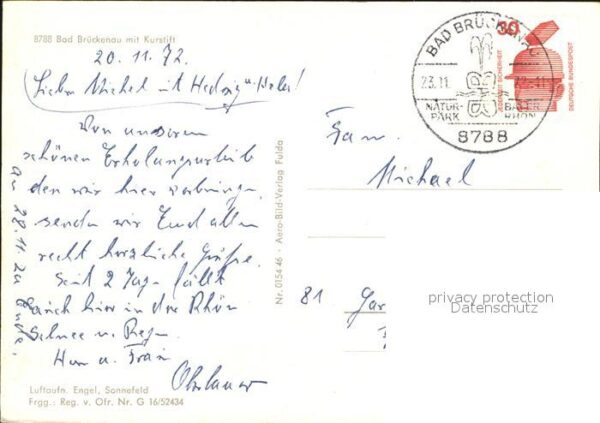 8788 Bad Brückenau mit Kurstift
20. 11. 72.
Lieber Michel mit Hedwig u.
Von unserem
schönen Erholungsurlaub
den wir hier verbringen,
senden wir Euch allen
recht herzliche Grüße.
Seit 2 Tagen fällt
auch hier in der Rhön
Schnee u. Regen.
Herr u. Frau
Luftaufn. Engel, Sannefeld
Frgg.: Reg. v. Ofr. Nr. G 16/52434
am 28. 11. zu
Nr. 0154 46 · Aero-Bild-Verlag Fulda
BAD BRÜCKENAU
23.11.
NATUR-
PARK
BAYER.
RHÖN
8788
30
JEDERZEIT SICHERHEIT
DEUTSCHE BUNDESPOST
Fam.
Michael
81
privacy protection
Datenschutz